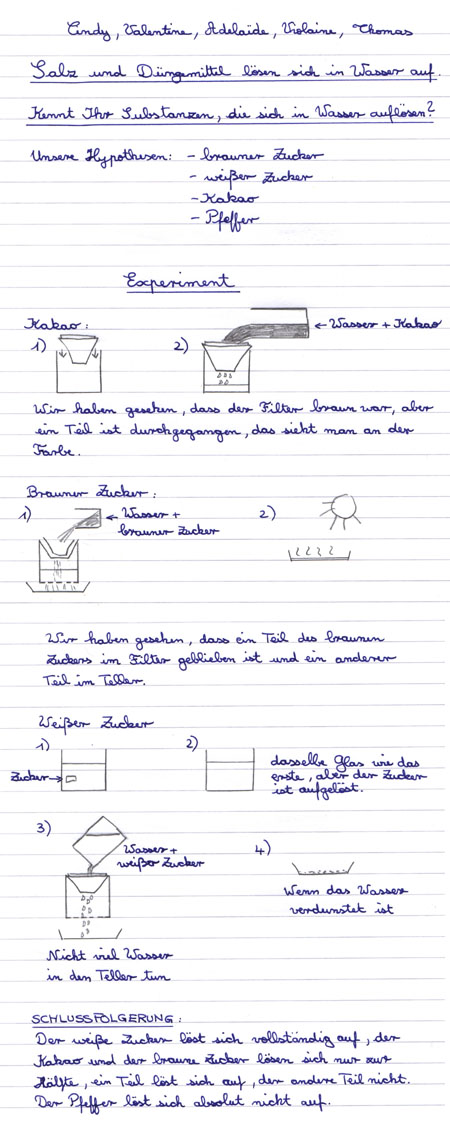 Cindy, Valentine, Adelaïde, Violaine, Thomas
Salz und Düngemittel lösen sich in Wasser auf.
Kennt Ihr Substanzen, die sich in Wasser auflösen?
Unsere Hypothesen: - brauner Zucker
- weißer Zucker
- Kakao
- Pfeffer
Experiment
Kakao:
1)
2)
← Wasser + Kakao
Wir haben gesehen, dass der Filter braun war, aber
ein Teil ist durchgegangen, das sieht man an der
Farbe.
Brauner Zucker:
1)
← Wasser +
brauner Zucker
2)
Wir haben gesehen, dass ein Teil des braunen
Zuckers im Filter geblieben ist und ein anderer
Teil im Teller.
Weißer Zucker
1)
Zucker→
2)
dasselbe Glas wie das
erste, aber der Zucker
ist aufgelöst.
3)
Wasser +
weißer Zucker
4)
Wenn das Wasser
verdunstet ist
Nicht viel Wasser
in den Teller tun
SCHLUSSFOLGERUNG:
Der weiße Zucker löst sich vollständig auf, der
Kakao und der braune Zucker lösen sich nur zur
Hälfte, ein Teil löst sich auf, der andere Teil nicht.
Der Pfeffer löst sich absolut nicht auf.